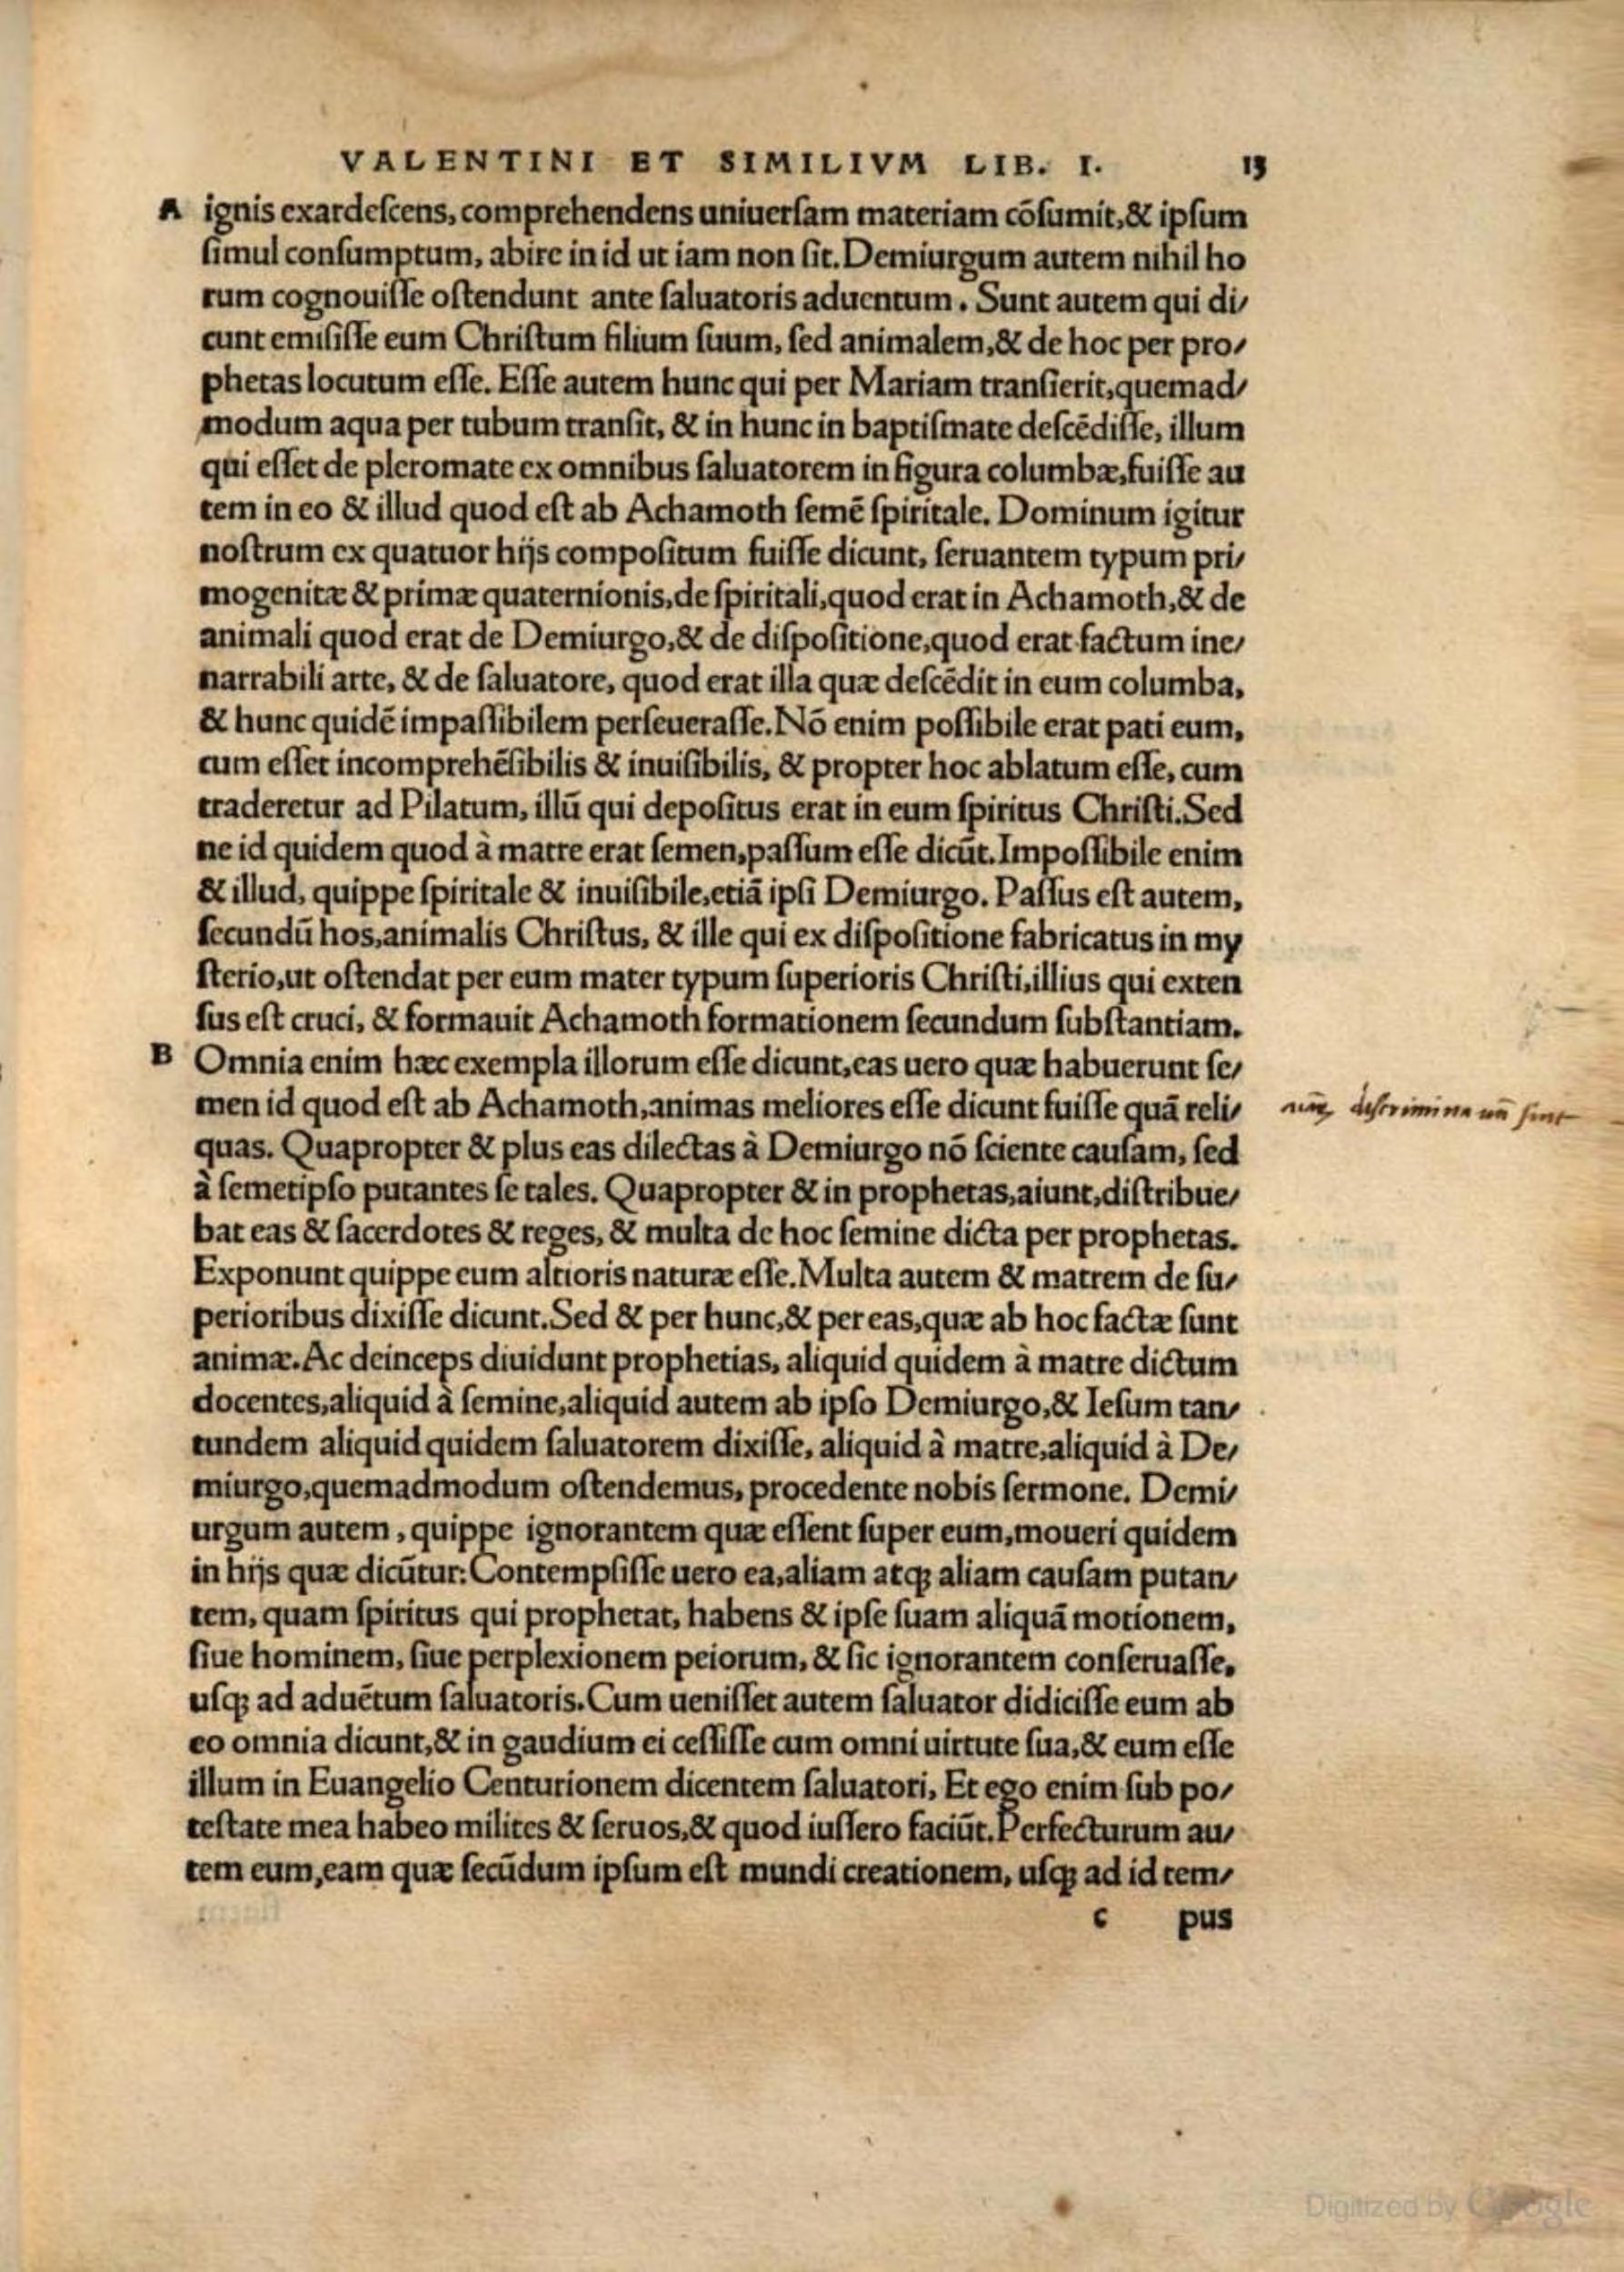 VALENTINI ET SIMILIVM LIB. I. 13
A ignis exardeſcens, comprehendens uniuerſam materiam cōſumit, & ipſum
ſimul conſumptum, abire in id ut iam non ſit. Demiurgum autem nihil ho
rum cognouiſſe oſtendunt ante ſaluatoris aduentum. Sunt autem qui di/
cunt emiſiſſe eum Chriſtum filium ſuum, ſed animalem, & de hoc per pro/
phetas locutum eſſe. Eſſe autem hunc qui per Mariam tranſierit, quemad/
modum aqua per tubum tranſit, & in hunc in baptiſmate deſcēdiſſe, illum
qui eſſet de pleromate ex omnibus ſaluatorem in figura columbæ, fuiſſe au
tem in eo & illud quod eſt ab Achamoth ſemē ſpiritale. Dominum igitur
noſtrum ex quatuor hijs compoſitum fuiſſe dicunt, ſeruantem typum pri/
mogenitæ & primæ quaternionis, de ſpiritali, quod erat in Achamoth, & de
animali quod erat de Demiurgo, & de diſpoſitione, quod erat factum ine/
narrabili arte, & de ſaluatore, quod erat illa quæ deſcēdit in eum columba,
& hunc quidē impaſſibilem perſeueraſſe. Nō enim poſſibile erat pati eum,
cum eſſet incomprehēſibilis & inuiſibilis, & propter hoc ablatum eſſe, cum
traderetur ad Pilatum, illū qui depoſitus erat in eum ſpiritus Chriſti. Sed
ne id quidem quod à matre erat ſemen, paſſum eſſe dicūt. Impoſſibile enim
& illud, quippe ſpiritale & inuiſibile, etiā ipſi Demiurgo. Paſſus eſt autem,
ſecundū hos, animalis Chriſtus, & ille qui ex diſpoſitione fabricatus in my
ſterio, ut oſtendat per eum mater typum ſuperioris Chriſti, illius qui exten
ſus eſt cruci, & formauit Achamoth formationem ſecundum ſubſtantiam.
B Omnia enim hæc exempla illorum eſſe dicunt, eas uero quæ habuerunt ſe/
men id quod eſt ab Achamoth, animas meliores eſſe dicunt fuiſſe quā reli/
quas. Quapropter & plus eas dilectas à Demiurgo nō ſciente cauſam, ſed
à ſemetipſo putantes ſe tales. Quapropter & in prophetas, aiunt, diſtribue/
bat eas & ſacerdotes & reges, & multa de hoc ſemine dicta per prophetas.
Exponunt quippe eum altioris naturæ eſſe. Multa autem & matrem de ſu/
perioribus dixiſſe dicunt. Sed & per hunc, & per eas, quæ ab hoc factæ ſunt
animæ. Ac deinceps diuidunt prophetias, aliquid quidem à matre dictum
docentes, aliquid à ſemine, aliquid autem ab ipſo Demiurgo, & Ieſum tan/
tundem aliquid quidem ſaluatorem dixiſſe, aliquid à matre, aliquid à De/
miurgo, quemadmodum oſtendemus, procedente nobis ſermone. Demi/
urgum autem, quippe ignorantem quæ eſſent ſuper eum, moueri quidem
in hijs quæ dicūtur: Contempſiſſe uero ea, aliam atq; aliam cauſam putan/
tem, quam ſpiritus qui prophetat, habens & ipſe ſuam aliquā motionem,
ſiue hominem, ſiue perplexionem peiorum, & ſic ignorantem conſeruaſſe,
uſq; ad aduētum ſaluatoris. Cum ueniſſet autem ſaluator didiciſſe eum ab
eo omnia dicunt, & in gaudium ei ceſſiſſe cum omni uirtute ſua, & eum eſſe
illum in Euangelio Centurionem dicentem ſaluatori, Et ego enim ſub po/
teſtate mea habeo milites & ſeruos, & quod iuſſero faciūt. Perfecturum au/
tem eum, eam quæ ſecūdum ipſum eſt mundi creationem, uſq; ad id tem/
c pus
diſcrimina
ſint
Digitized by Google